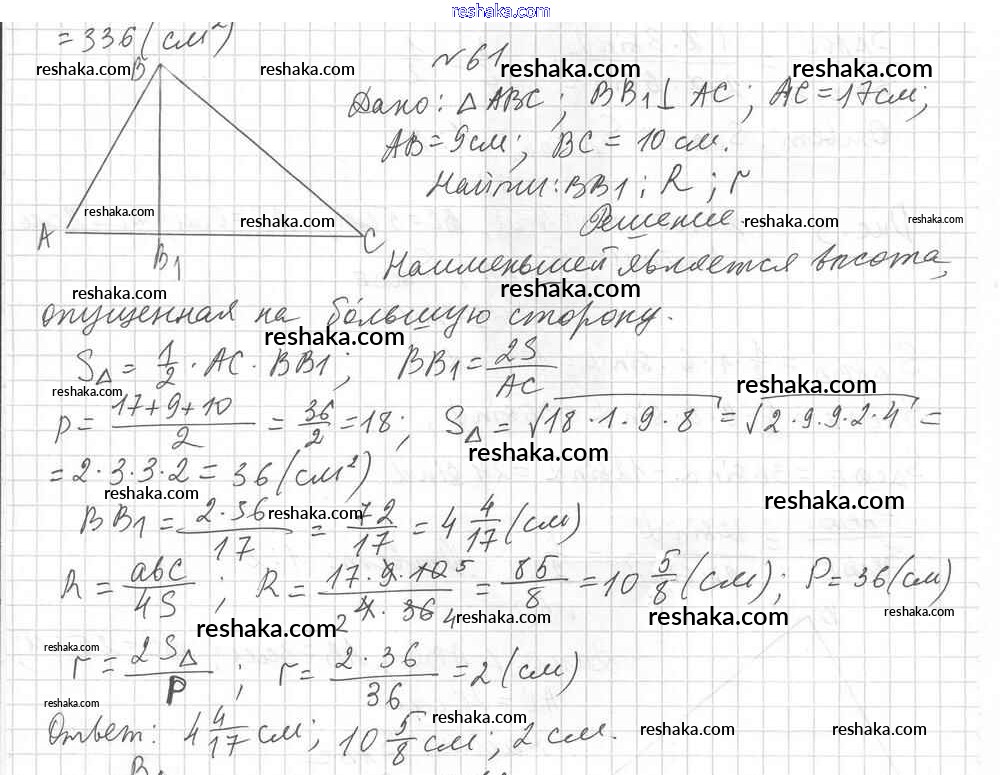 reshaka.com
= 336 (см²)
№ 61
reshaka.com reshaka.com reshaka.com reshaka.com
B
Дано: △ ABC; BB1 ⊥ AC; AC = 17 см;
AB = 9 см; BC = 10 см.
Найти: BB1; R; r
reshaka.com reshaka.com reshaka.com reshaka.com
Решение
A C
B1
Наименьшей является высота,
reshaka.com reshaka.com
опущенная на бо́льшую сторону.
reshaka.com
S△ = 1/2 · AC · BB1; BB1 = 2S/AC
reshaka.com reshaka.com
p = (17+9+10)/2 = 36/2 = 18; S△ = √(18·1·9·8) = √(2·9·9·2·4) =
reshaka.com
= 2·3·3·2 = 36 (см²)
reshaka.com reshaka.com
BB1 = 2·36/17 = 72/17 = 4 4/17 (см)
reshaka.com
R = abc/4S; R = 17·9·10 5/2 4·36 4 = 85/8 = 10 5/8 (см); P = 36 (см)
reshaka.com reshaka.com reshaka.com
r = 2S△/P; r = 2·36/36 = 2 (см)
reshaka.com reshaka.com
Ответ: 4 4/17 см; 10 5/8 см; 2 см.
reshaka.com reshaka.com reshaka.com reshaka.com
B